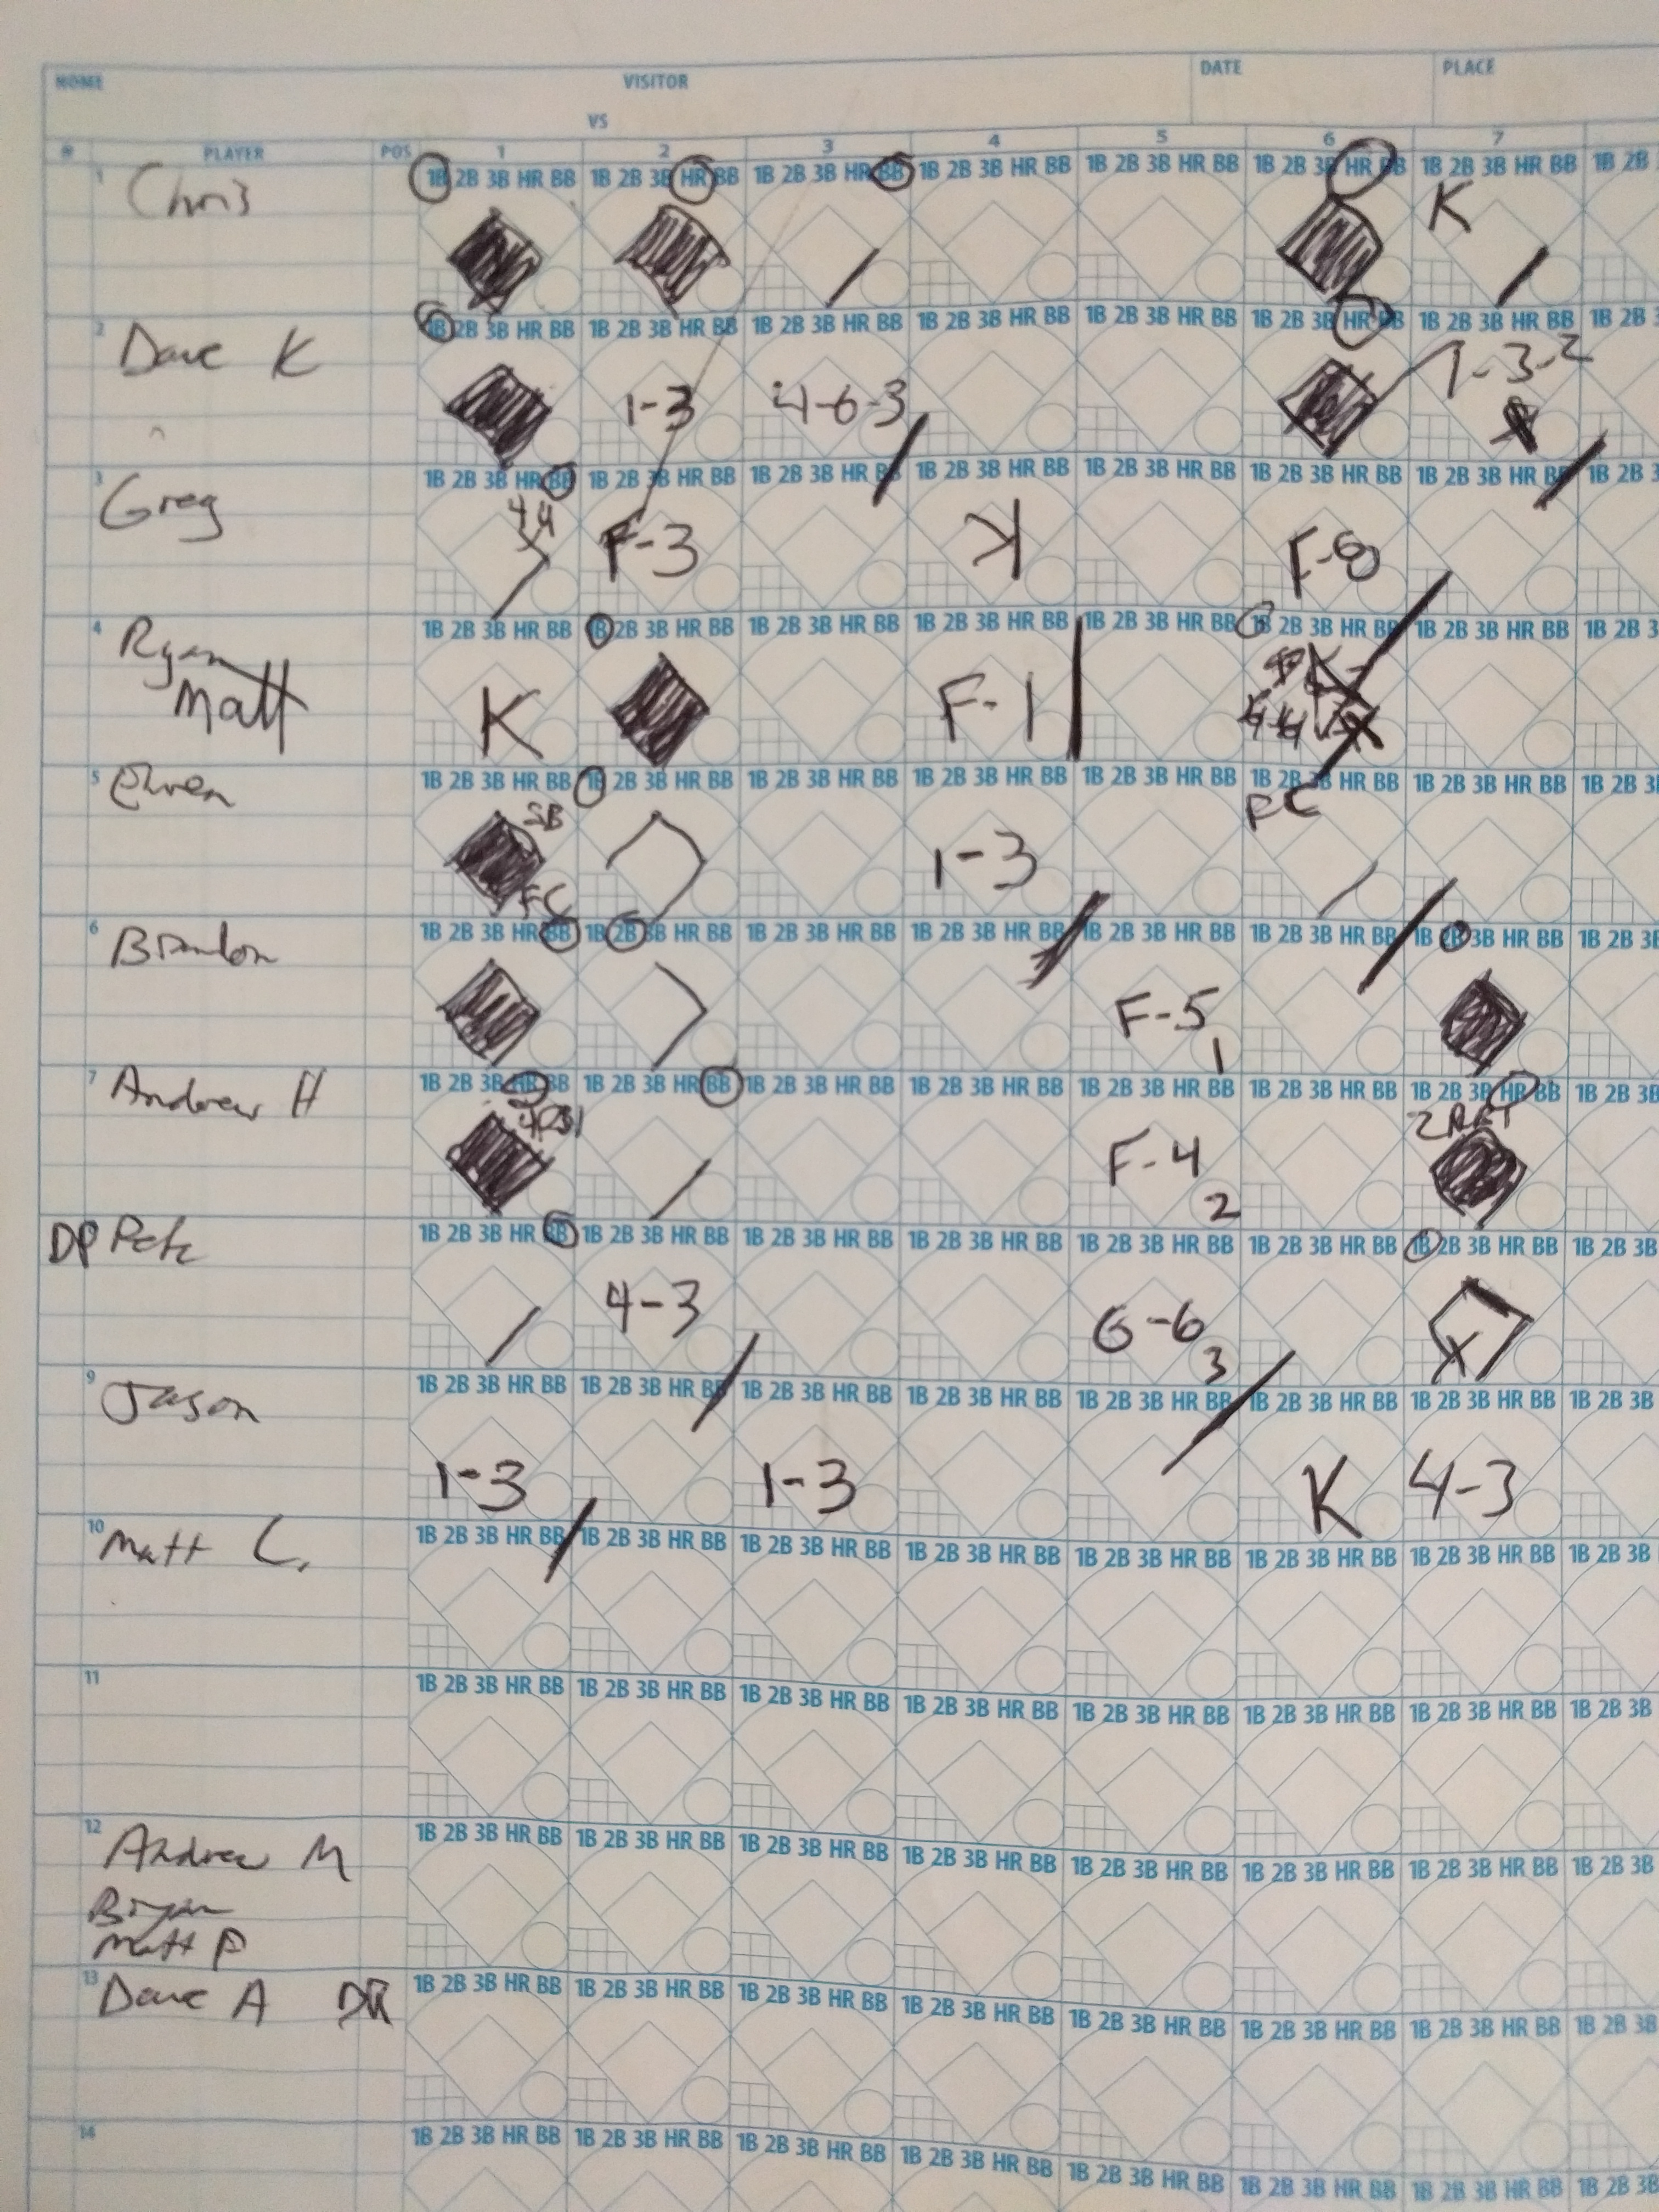 HOME VISITOR DATE PLACE
VS
# PLAYER POS 1 2 3 4 5 6 7
1 1B 2B 3B HR BB 1B 2B 3B HR BB 1B 2B 3B HR BB 1B 2B 3B HR BB 1B 2B 3B HR BB 1B 2B 3B HR BB 1B 2B 3B HR BB 1B 2B
Chris K
2 1B 2B 3B HR BB 1B 2B 3B HR BB 1B 2B 3B HR BB 1B 2B 3B HR BB 1B 2B 3B HR BB 1B 2B 3B HR BB 1B 2B 3B HR BB 1B 2B 3
Dave K 1-3 4-6-3 1-3-2
3 1B 2B 3B HR BB 1B 2B 3B HR BB 1B 2B 3B HR BB 1B 2B 3B HR BB 1B 2B 3B HR BB 1B 2B 3B HR BB 1B 2B 3B HR BB 1B 2B 3
Greg F-3 K F-8
4 1B 2B 3B HR BB 1B 2B 3B HR BB 1B 2B 3B HR BB 1B 2B 3B HR BB 1B 2B 3B HR BB 1B 2B 3B HR BB 1B 2B 3B HR BB 1B 2B 3
Ryan
Matt K F-1
5 1B 2B 3B HR BB 1B 2B 3B HR BB 1B 2B 3B HR BB 1B 2B 3B HR BB 1B 2B 3B HR BB 1B 2B 3B HR BB 1B 2B 3B HR BB 1B 2B 3
SB FC
FC 1-3
6 1B 2B 3B HR BB 1B 2B 3B HR BB 1B 2B 3B HR BB 1B 2B 3B HR BB 1B 2B 3B HR BB 1B 2B 3B HR BB 1B 2B 3B HR BB 1B 2B 3B
Brandon F-5 1
7 1B 2B 3B HR BB 1B 2B 3B HR BB 1B 2B 3B HR BB 1B 2B 3B HR BB 1B 2B 3B HR BB 1B 2B 3B HR BB 1B 2B 3B HR BB 1B 2B 3B
Andrew H 4RBI F-4 2
1B 2B 3B HR BB 1B 2B 3B HR BB 1B 2B 3B HR BB 1B 2B 3B HR BB 1B 2B 3B HR BB 1B 2B 3B HR BB 1B 2B 3B HR BB 1B 2B 3B
DP Pete 4-3 G-6 3
9 1B 2B 3B HR BB 1B 2B 3B HR BB 1B 2B 3B HR BB 1B 2B 3B HR BB 1B 2B 3B HR BB 1B 2B 3B HR BB 1B 2B 3B HR BB 1B 2B 3B
Jason 1-3 1-3 K 4-3
10 1B 2B 3B HR BB 1B 2B 3B HR BB 1B 2B 3B HR BB 1B 2B 3B HR BB 1B 2B 3B HR BB 1B 2B 3B HR BB 1B 2B 3B HR BB 1B 2B 3B
Matt C.
11 1B 2B 3B HR BB 1B 2B 3B HR BB 1B 2B 3B HR BB 1B 2B 3B HR BB 1B 2B 3B HR BB 1B 2B 3B HR BB 1B 2B 3B HR BB 1B 2B 3B
12 1B 2B 3B HR BB 1B 2B 3B HR BB 1B 2B 3B HR BB 1B 2B 3B HR BB 1B 2B 3B HR BB 1B 2B 3B HR BB 1B 2B 3B HR BB 1B 2B 3B
Andrew M
Bryan
Matt P
13 1B 2B 3B HR BB 1B 2B 3B HR BB 1B 2B 3B HR BB 1B 2B 3B HR BB 1B 2B 3B HR BB 1B 2B 3B HR BB 1B 2B 3B HR BB 1B 2B 3B
Dave A
14 1B 2B 3B HR BB 1B 2B 3B HR BB 1B 2B 3B HR BB 1B 2B 3B HR BB 1B 2B 3B HR BB 1B 2B 3B HR BB 1B 2B 3B HR BB 1B 2B 3B